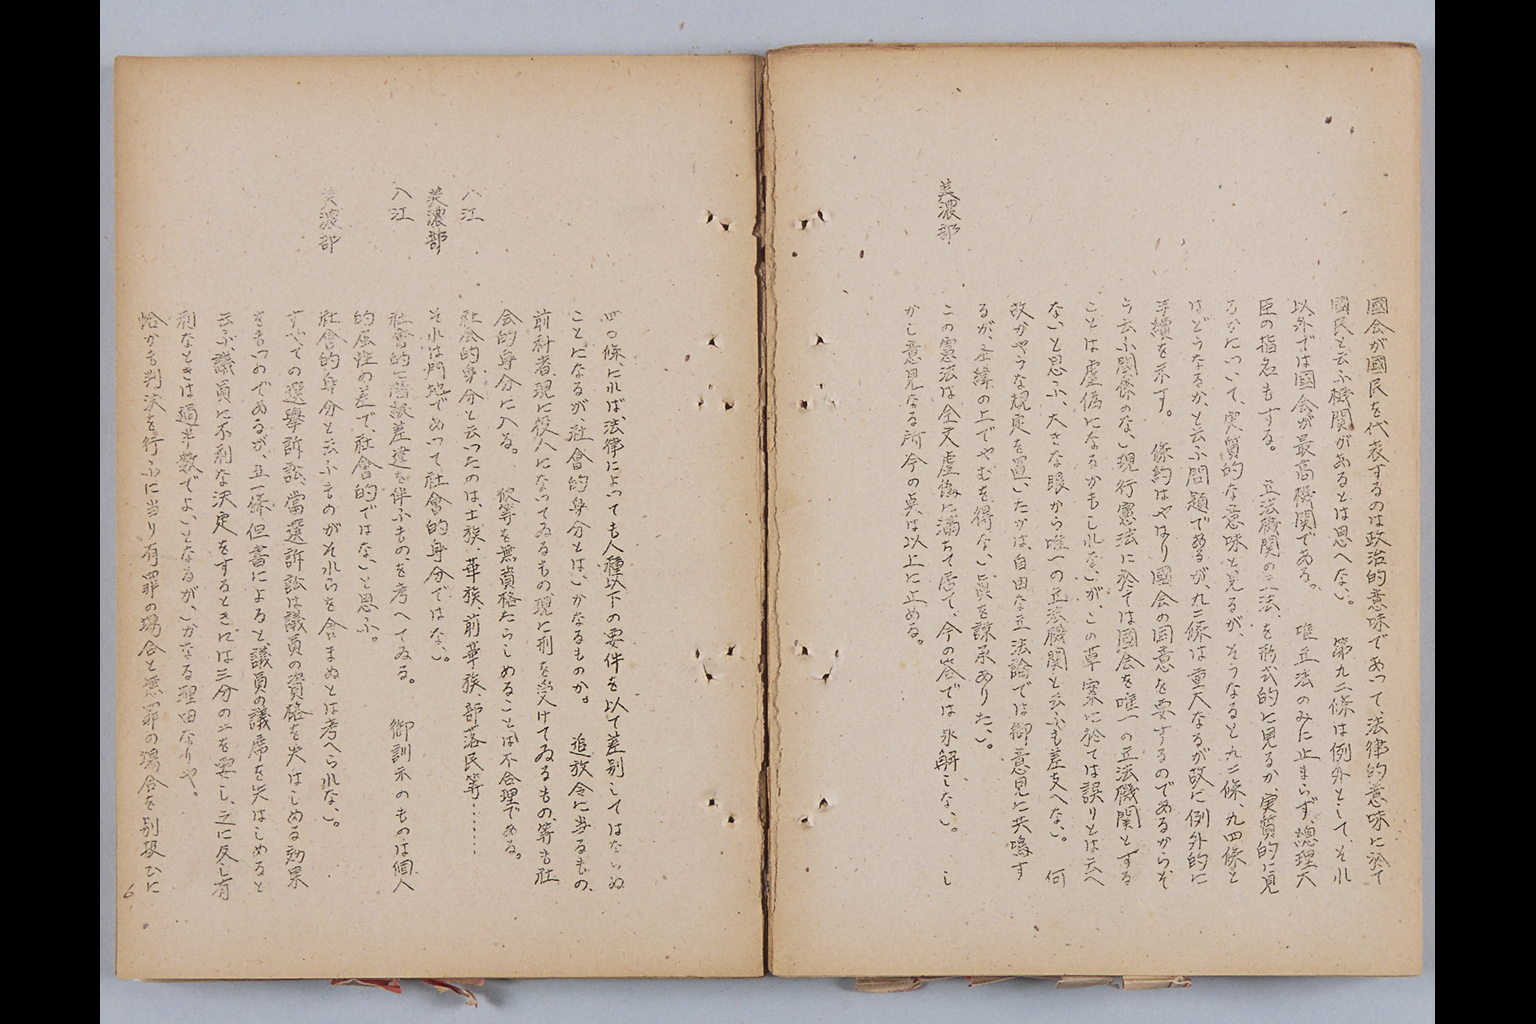 國会が國民を代表するのは政治的意味であつて、法律的意味に於て
國民と云ふ機関があるとは思へない。 第九二條は例外として、それ
以外では国会が最高機関である。 唯立法のみに止まらず、總理大
臣の指名もする。 立法機関の立法、を形式的に見るか、実質的に見
るかについて、実質的な意味と見るが、そうなると九二條、九四條と
はどうなるか、と云ふ問題であるが、九二條は重大なるが故に例外的に
手續を示す。 條約はやはり國会の同意を要するのであるからそ
う云ふ関係のない現行憲法に於ては國会を唯一の立法機関とする
ことは虚偽になるかもしれないが、この草案に於ては誤りとは云へ
ないと思ふ、大きな眼から唯一の立法機関と云ふも差支へない。 何
故かやうな規定を置いたかは、自由な立法論では御意見に共鳴す
るが、至緯の上でやむを得ない点を諒承ありたい。
美濃部 この憲法は全文虚偽に満ちて居て、今の答では氷解しない。 し
かし意見なる所今の点は以上に止める。
四〇條、によれば法律によつても人種以下の要件を以て差別してはならぬ
ことになるが社會的身分とはいかなるものか。 追放令に当るもの、
前科者、現に役人になつてゐるもの現に刑を受けてゐるもの、等も社
会的身分に入る。 彼等を無資格たらしめることは不合理である。
入江 社会的身分と云つたのは、士族、華族、前華族、部落民等……
美濃部 それは門地であつて社會的身分ではない。
入江 社會的に階級差違を伴ふもの、を考へてゐる。 御訓示のものは個人
的属性の差で、社會的ではないと思ふ。
美濃部 社會的身分と云ふものがそれらを含まぬとは考へられない。
すべての選擧訴訟、當選訴訟は議員の資格を失はしめる効果
をもつのであるが、五一條但書によると、議員の議席を失はしめると
云ふ、議員に不利な決定をするときには三分の二を要し、之に反し有
利なときは過半数でよいとなるが、いかなる理由なりや。
恰かも判決を行ふに当り有罪の場合と無罪の場合を別扱ひに
6